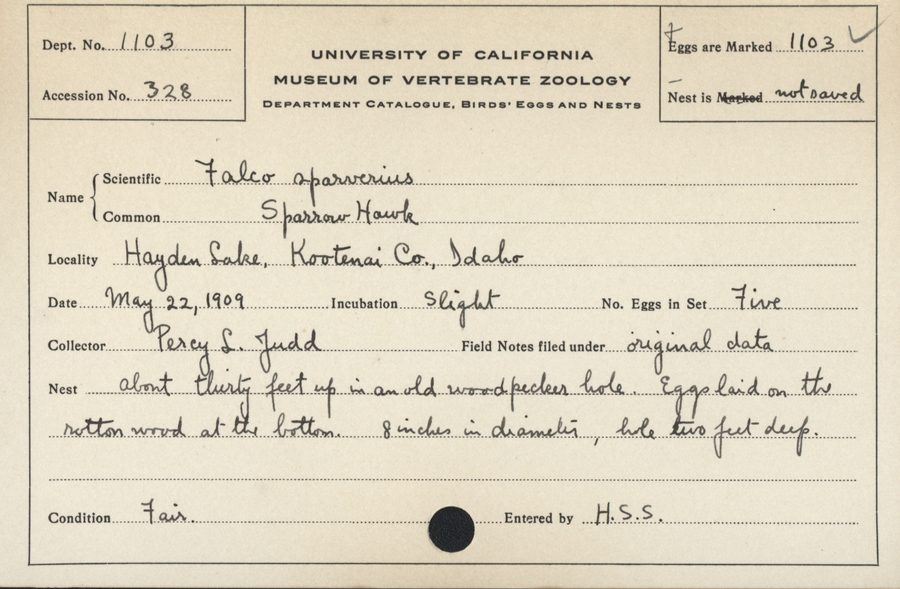 Dept. No. 1103
Accession No. 328
UNIVERSITY OF CALIFORNIA
MUSEUM OF VERTEBRATE ZOOLOGY
DEPARTMENT CATALOGUE, BIRDS' EGGS AND NESTS
Eggs are Marked 1103
Nest is Marked not saved
Name
Scientific Falco sparverius
Common Sparrow Hawk
Locality Hayden Lake, Kootenai Co., Idaho
Date May 22, 1909 Incubation Slight No. Eggs in Set Five
Collector Percy L. Judd Field Notes filed under original data
Nest about thirty feet up in an old woodpecker hole. Eggs laid on the
rotton wood at the bottom. 8 inches in diameter, hole two feet deep.
Condition Fair. Entered by H.S.S.